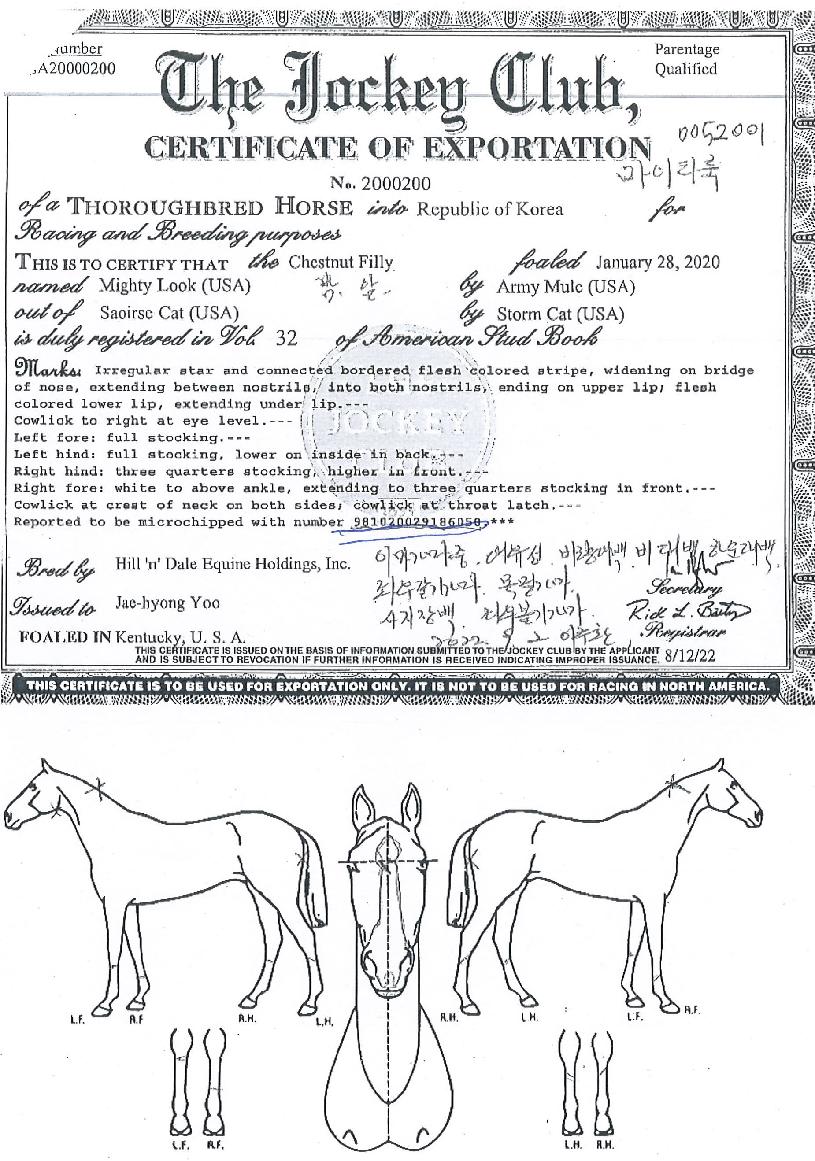 umber
A20000200
Parentage
Qualified
The Jockey Club,
CERTIFICATE OF EXPORTATION
0052001
마이티룩
No. 2000200
of a THOROUGHBRED HORSE into Republic of Korea for
Racing and Breeding purposes
THIS IS TO CERTIFY THAT the Chestnut Filly foaled January 28, 2020
named Mighty Look (USA) by Army Mule (USA)
out of Saoirse Cat (USA) by Storm Cat (USA)
is duly registered in Vol. 32 of American Stud Book
Marks: Irregular star and connected bordered flesh colored stripe, widening on bridge
of nose, extending between nostrils, into both nostrils, ending on upper lip; flesh
colored lower lip, extending under lip.---
Cowlick to right at eye level.---
Left fore: full stocking.---
Left hind: full stocking, lower on inside in back.---
Right hind: three quarters stocking, higher in front.---
Right fore: white to above ankle, extending to three quarters stocking in front.---
Cowlick at crest of neck on both sides; cowlick at throat latch.---
Reported to be microchipped with number 981020029186050.***
JOCKEY
Bred by Hill 'n' Dale Equine Holdings, Inc.
Secretary
Issued to Jae-hyong Yoo
Registrar
FOALED IN Kentucky, U. S. A.
2022.
THIS CERTIFICATE IS ISSUED ON THE BASIS OF INFORMATION SUBMITTED TO THE JOCKEY CLUB BY THE APPLICANT
AND IS SUBJECT TO REVOCATION IF FURTHER INFORMATION IS RECEIVED INDICATING IMPROPER ISSUANCE.
8/12/22
THIS CERTIFICATE IS TO BE USED FOR EXPORTATION ONLY. IT IS NOT TO BE USED FOR RACING IN NORTH AMERICA.
L.F. R.F R.H. L.H. R.H. L.H. L.F. R.F.
L.F. R.F. L.H. R.H.